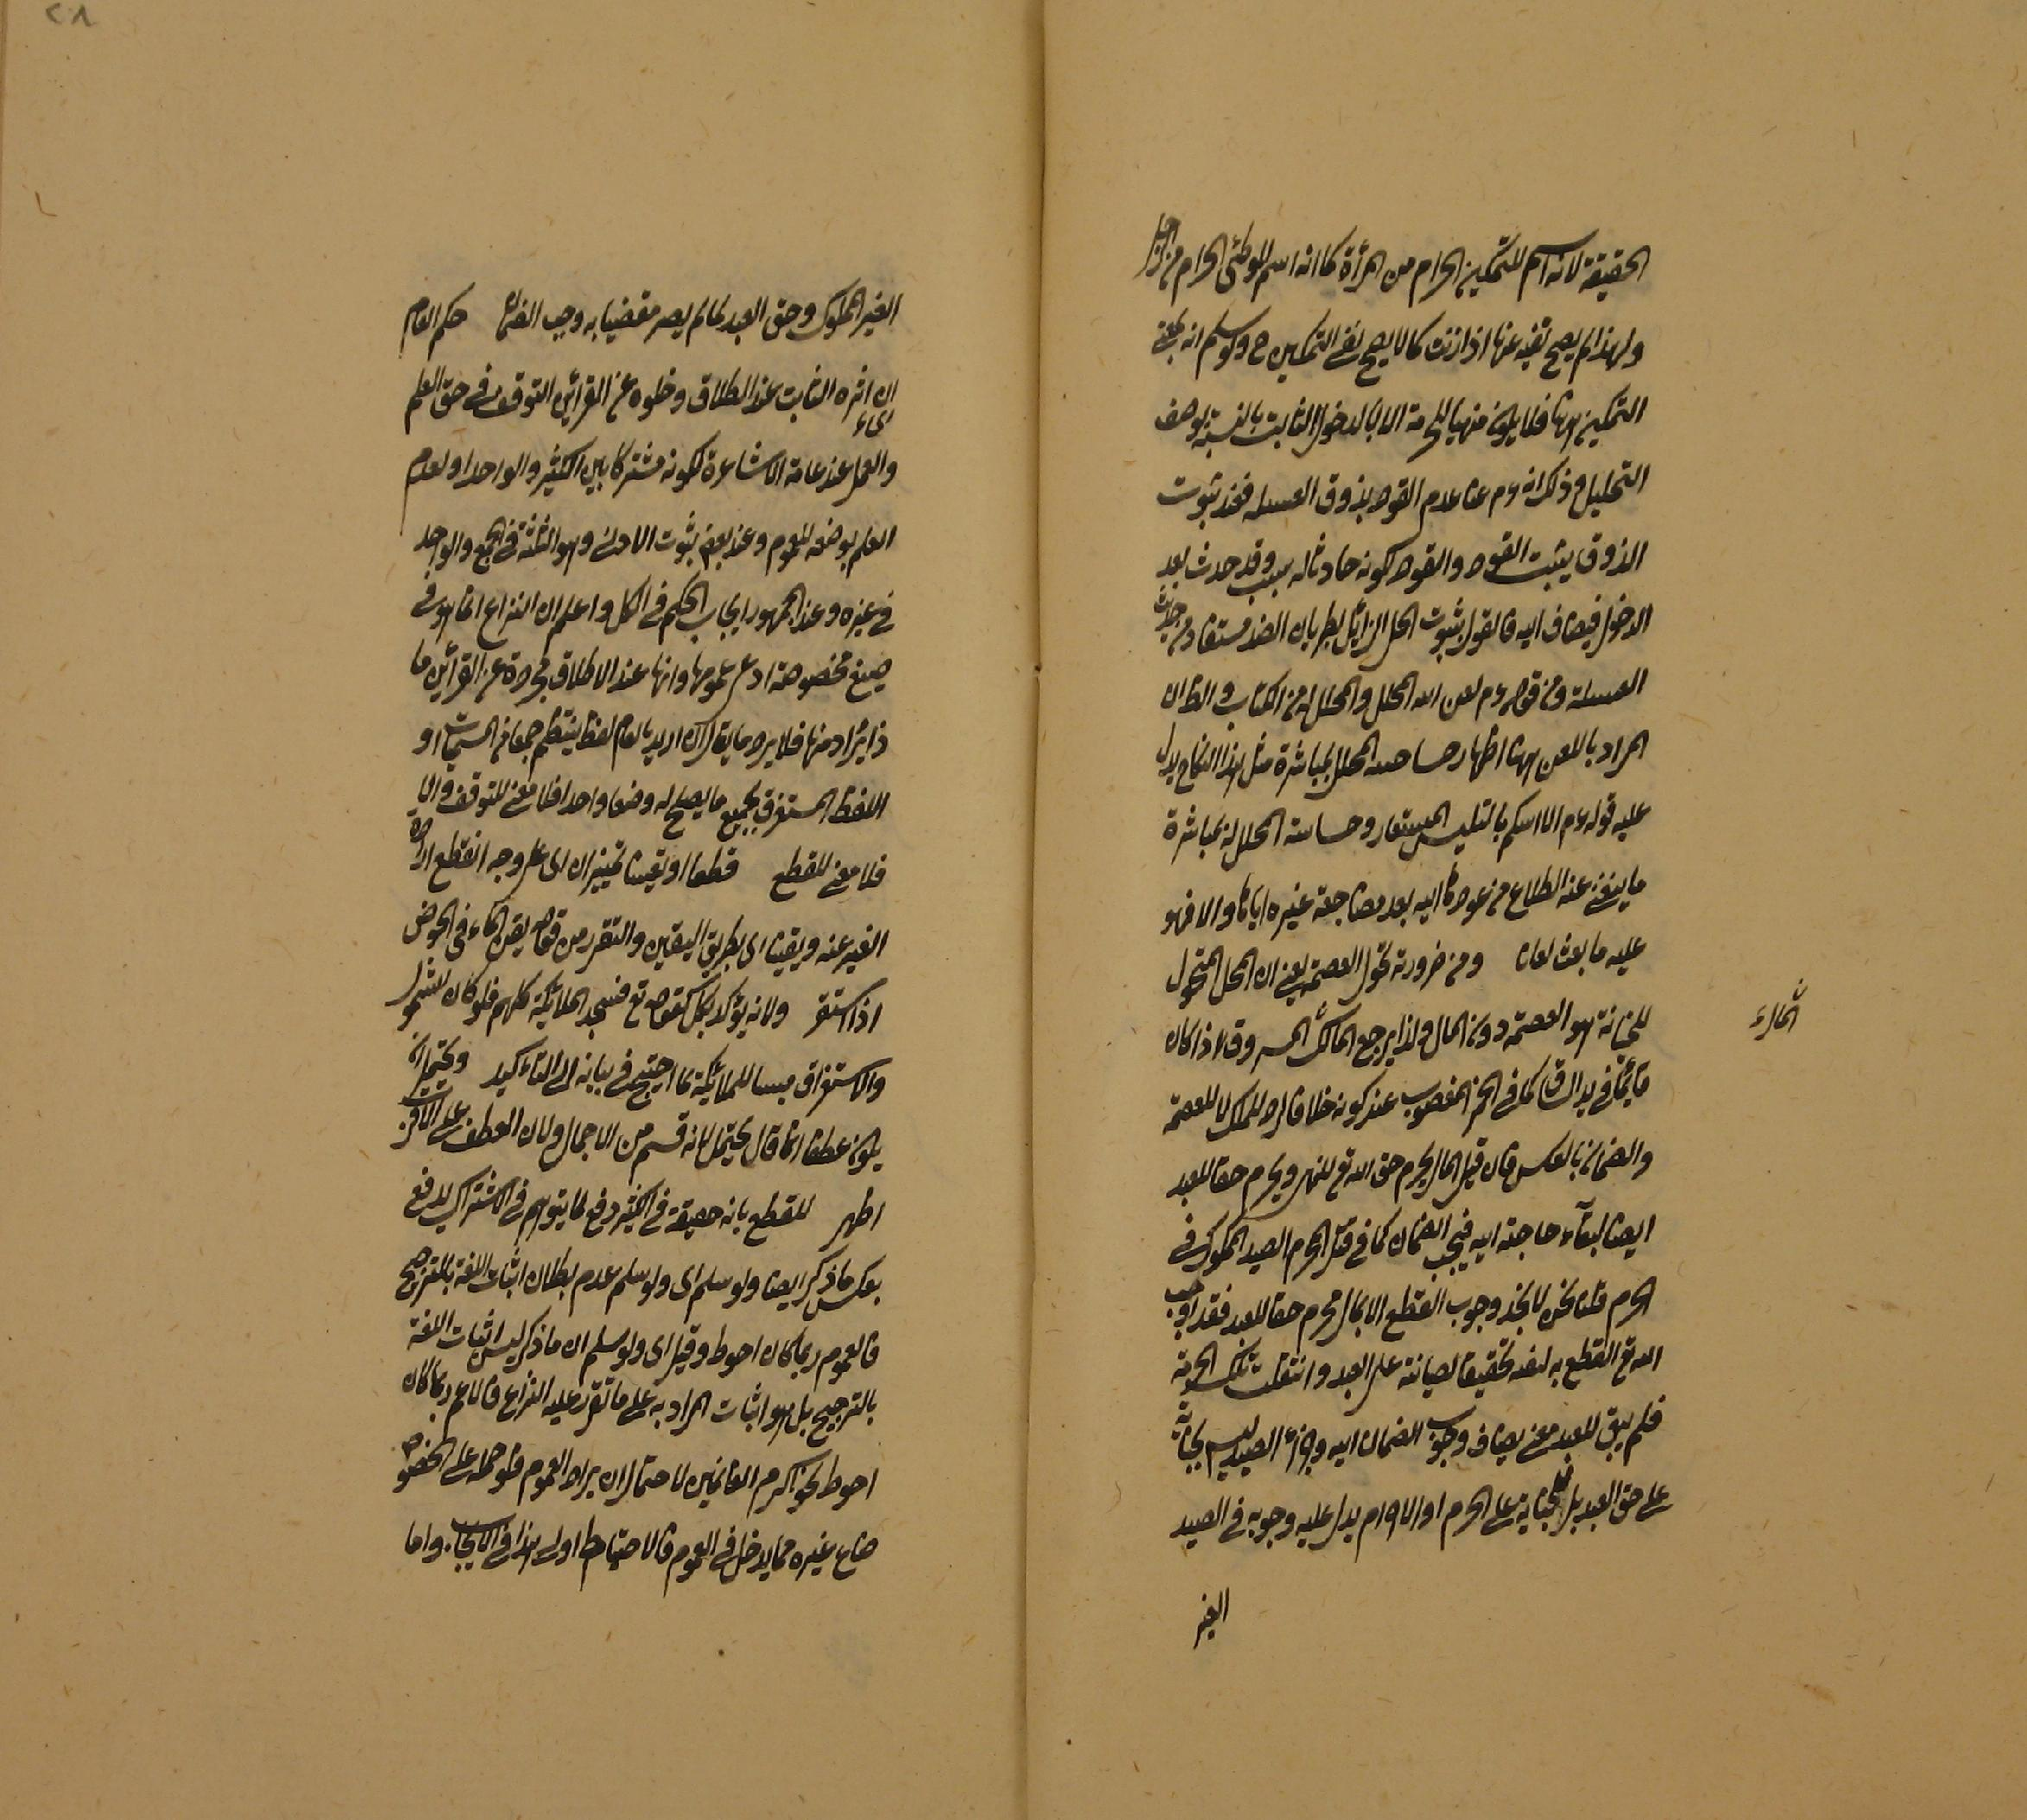 الحقيقة لانه اسم للتمكين الحرام من المرأة كما انه اسم للوطئ الحرام من الرجل
ولهذا لم يصح نفيه عنها اذا زنت كما لا يصح نفى التمكين ح ولو سلم انه بمعنى
التمكين ههنا فلا يكون منهيا للحرمة الا بالدخول الثابت بالنسبة لوصف
التحليل وذلك انه عم عدم العود بذوق العسيلة فعند ثبوت
الذوق يثبت العود والعود لكونه حادثا له سبب وقد حدث بعد
الدخول فيضاف اليه فالقول بثبوت الحل الزائل بطريان الضد مستفاد من حديث
العسيلة ومن قوله عم لعن الله المحلل والمحلل له من الكتاب والظ ان
المراد باللعن ههنا اظهار خساسة المحلل بمباشرة مثل هذا النكاح يدل
عليه قوله عم الا انبئكم بالتيس المستعار وخساسة المحلل له بمباشرة
ما ينفر عنه الطباع من عودها اليه بعد مضاجعة غيره اياها والا فهو
عليه ما بعث لعانا ومن ضرورته تحول العصمة يعنى ان المحل المتحول
للخيانة هو العصمة دون المال ولذا يرجع المالك المسروق اذا كان
قائما فى يد السارق كما فى الخمر المغصوب عند كونه خلا فان الملك لا للعصمة
والضمان بالعكس فان قيل المال محرم حق الله تع للنهى ويحرم حقا للعبد
ايضا لبقاء حاجته اليه فيجب الضمان كما فى قتل المحرم الصيد المملوك فى
الحرم قلنا نحن لا نجد وجوب القطع الا بمال محرم حقا للعبد فقد اوجب
الله تع القطع به لنفسه تحقيقا لصيانته على العبد وانتقلت تلك الحرمة
فلم يبق للعبد معنى يضاف وجوب الضمان اليه وجزاء الصيد ليس بجناية
على حق العبد بل لجناية على الحرم او الاحرام يدل عليه وجوبه فى الصيد
الغير
الغير المملوك وحق العبد لما لم يصر مقضيا به وجب الضمان حكم العام
اى اثره الثابت عند اطلاقه وخلوه عن القرائن التوقف فى حق العلم
والعمل عند عامة الاشاعرة لكونه مشتركا بين الكثير والواحد او لعدم
العلم بوضعه للعموم وعند بعض ثبوت الادنى وهو الثلثة فى الجمع والواحد
فى غيره وعند الجمهور ايجاب الحكم فى الكل واعلم ان النزاع انما هو فى
صيغ مخصوصة ادعى عمومها وانها عند الاطلاق مجردة عن القرائن ما
ذا يراد منها فلا يرد ما يقال ان اريد بالعام لفظ ينتظم جمعا من المسميات او
اللفظ المستغرق لجميع ما يصلح له وضعا واحدا فلا معنى للتوقف والا
فلا معنى للقطع قطعا او يقينا تمييزان اى على وجه انقطع ارادة
الغير عنه ويقينا اى بطريق اليقين والتقرر من قولهم يقن الماء فى الحوض
اذا استقر ولانه يؤكد بكل كقوله تع فسجد الملائكة كلهم فلو كان الشمول
والاستغراق للملائكة لما احتيج فى بيانه الى التأكيد ويحتمل ان
يكون عطفا انما قال يحتمل لانه قسم من الاجمال ولان العطف على الاقرب
اظهر للقطع بانه حقيقة فى الكثير دفع لما يتوهم فى الاشتراك يدفع
بعكس ما ذكر ايضا ولو سلم اى ولو سلم عدم بطلان اثبات اللغة بالترجيح
فالعموم ربما كان احوط وقيل اى ولو سلم ان ما ذكر ليس اثبات اللغة
بالترجيح بل هو اثبات المراد به على ما تقرر عليه النزاع فالاعم ربما كان
احوط نحو اكرم العالمين لاحتمال ان يراد العموم فلو حمل على الخصوص
ضاع غيره مما يدخل فى العموم فالاحتياط اولى هذا فى الايجاب واما